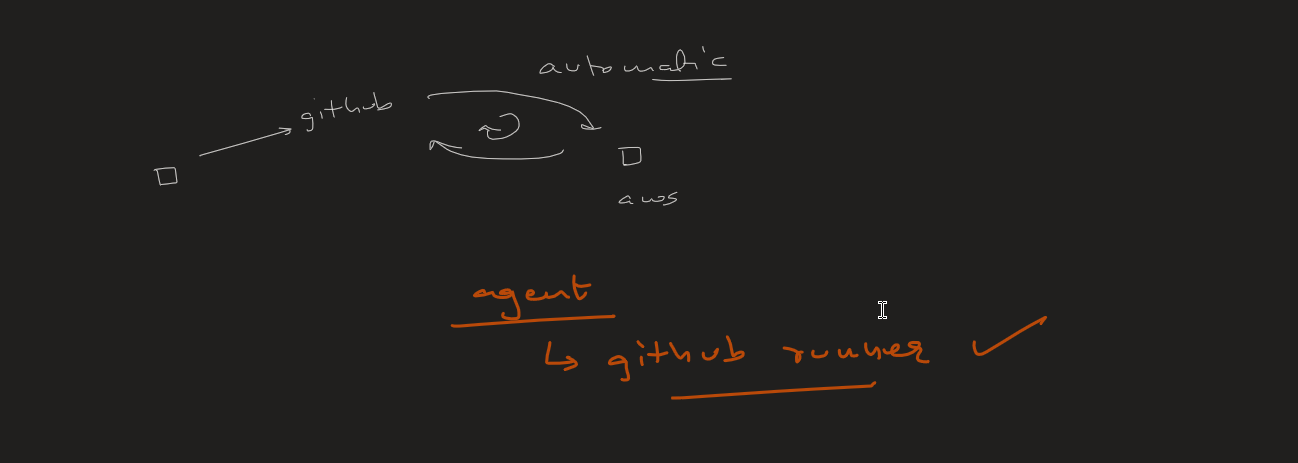 automatic
github
aws
agent
↳ github runner ✓